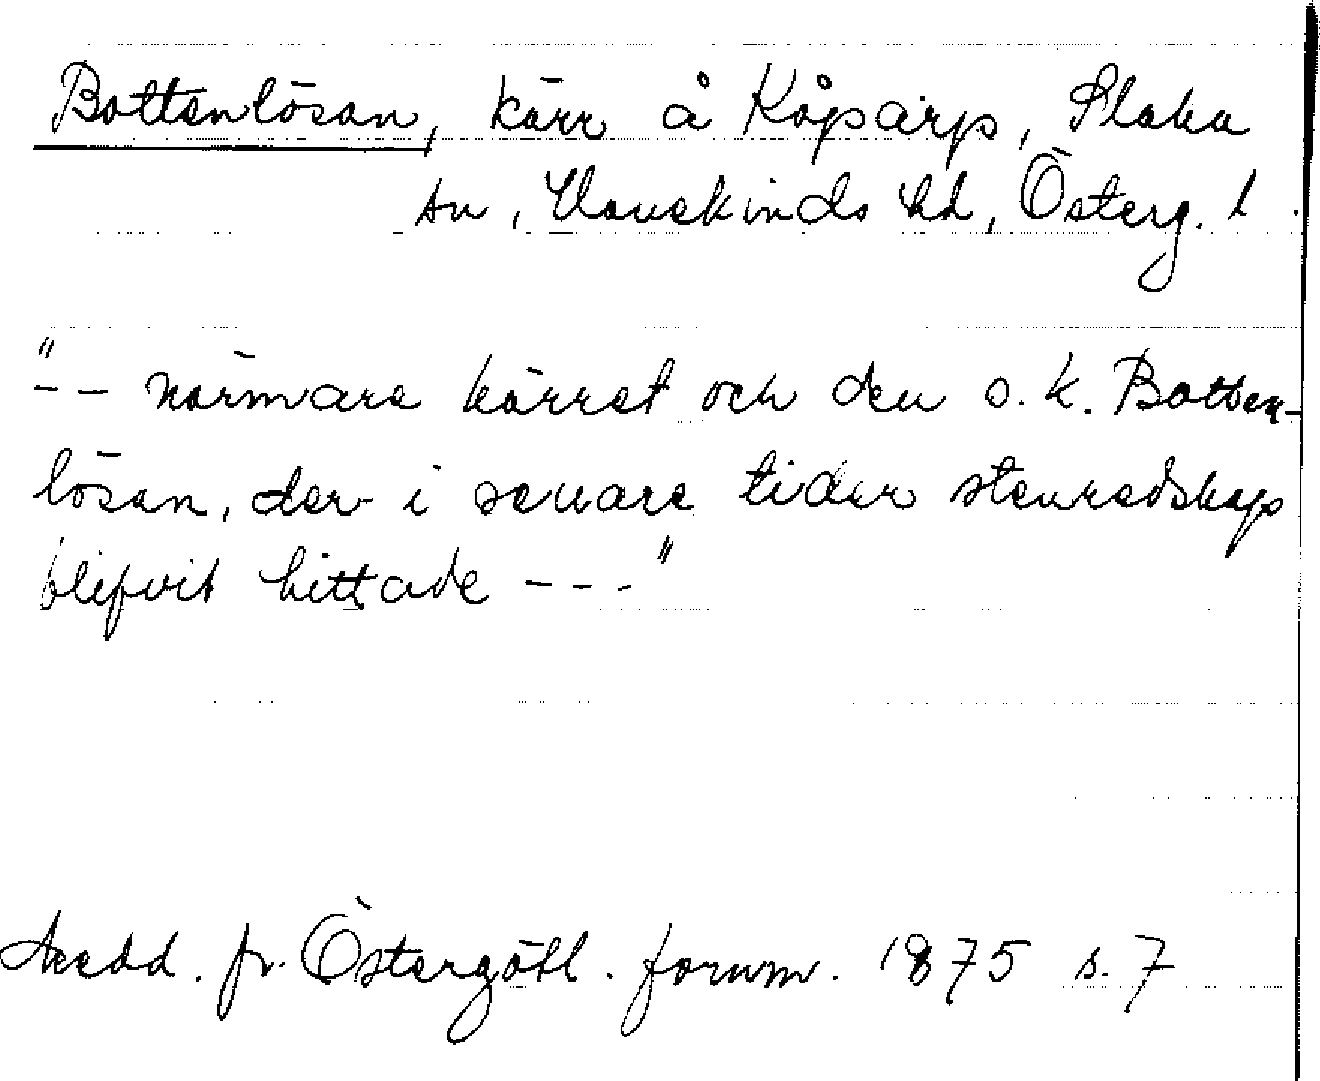 Bottenlösan, kärr å Kåparp, Slaka
sn, Hanekinds hd, Österg. l.
"-- närmare kärret och den s.k. Botten-
lösan, der i senare tider stenredskap
blifvit hittade ---"
Medd. fr. Östergötl. fornm. 1875 s. 7